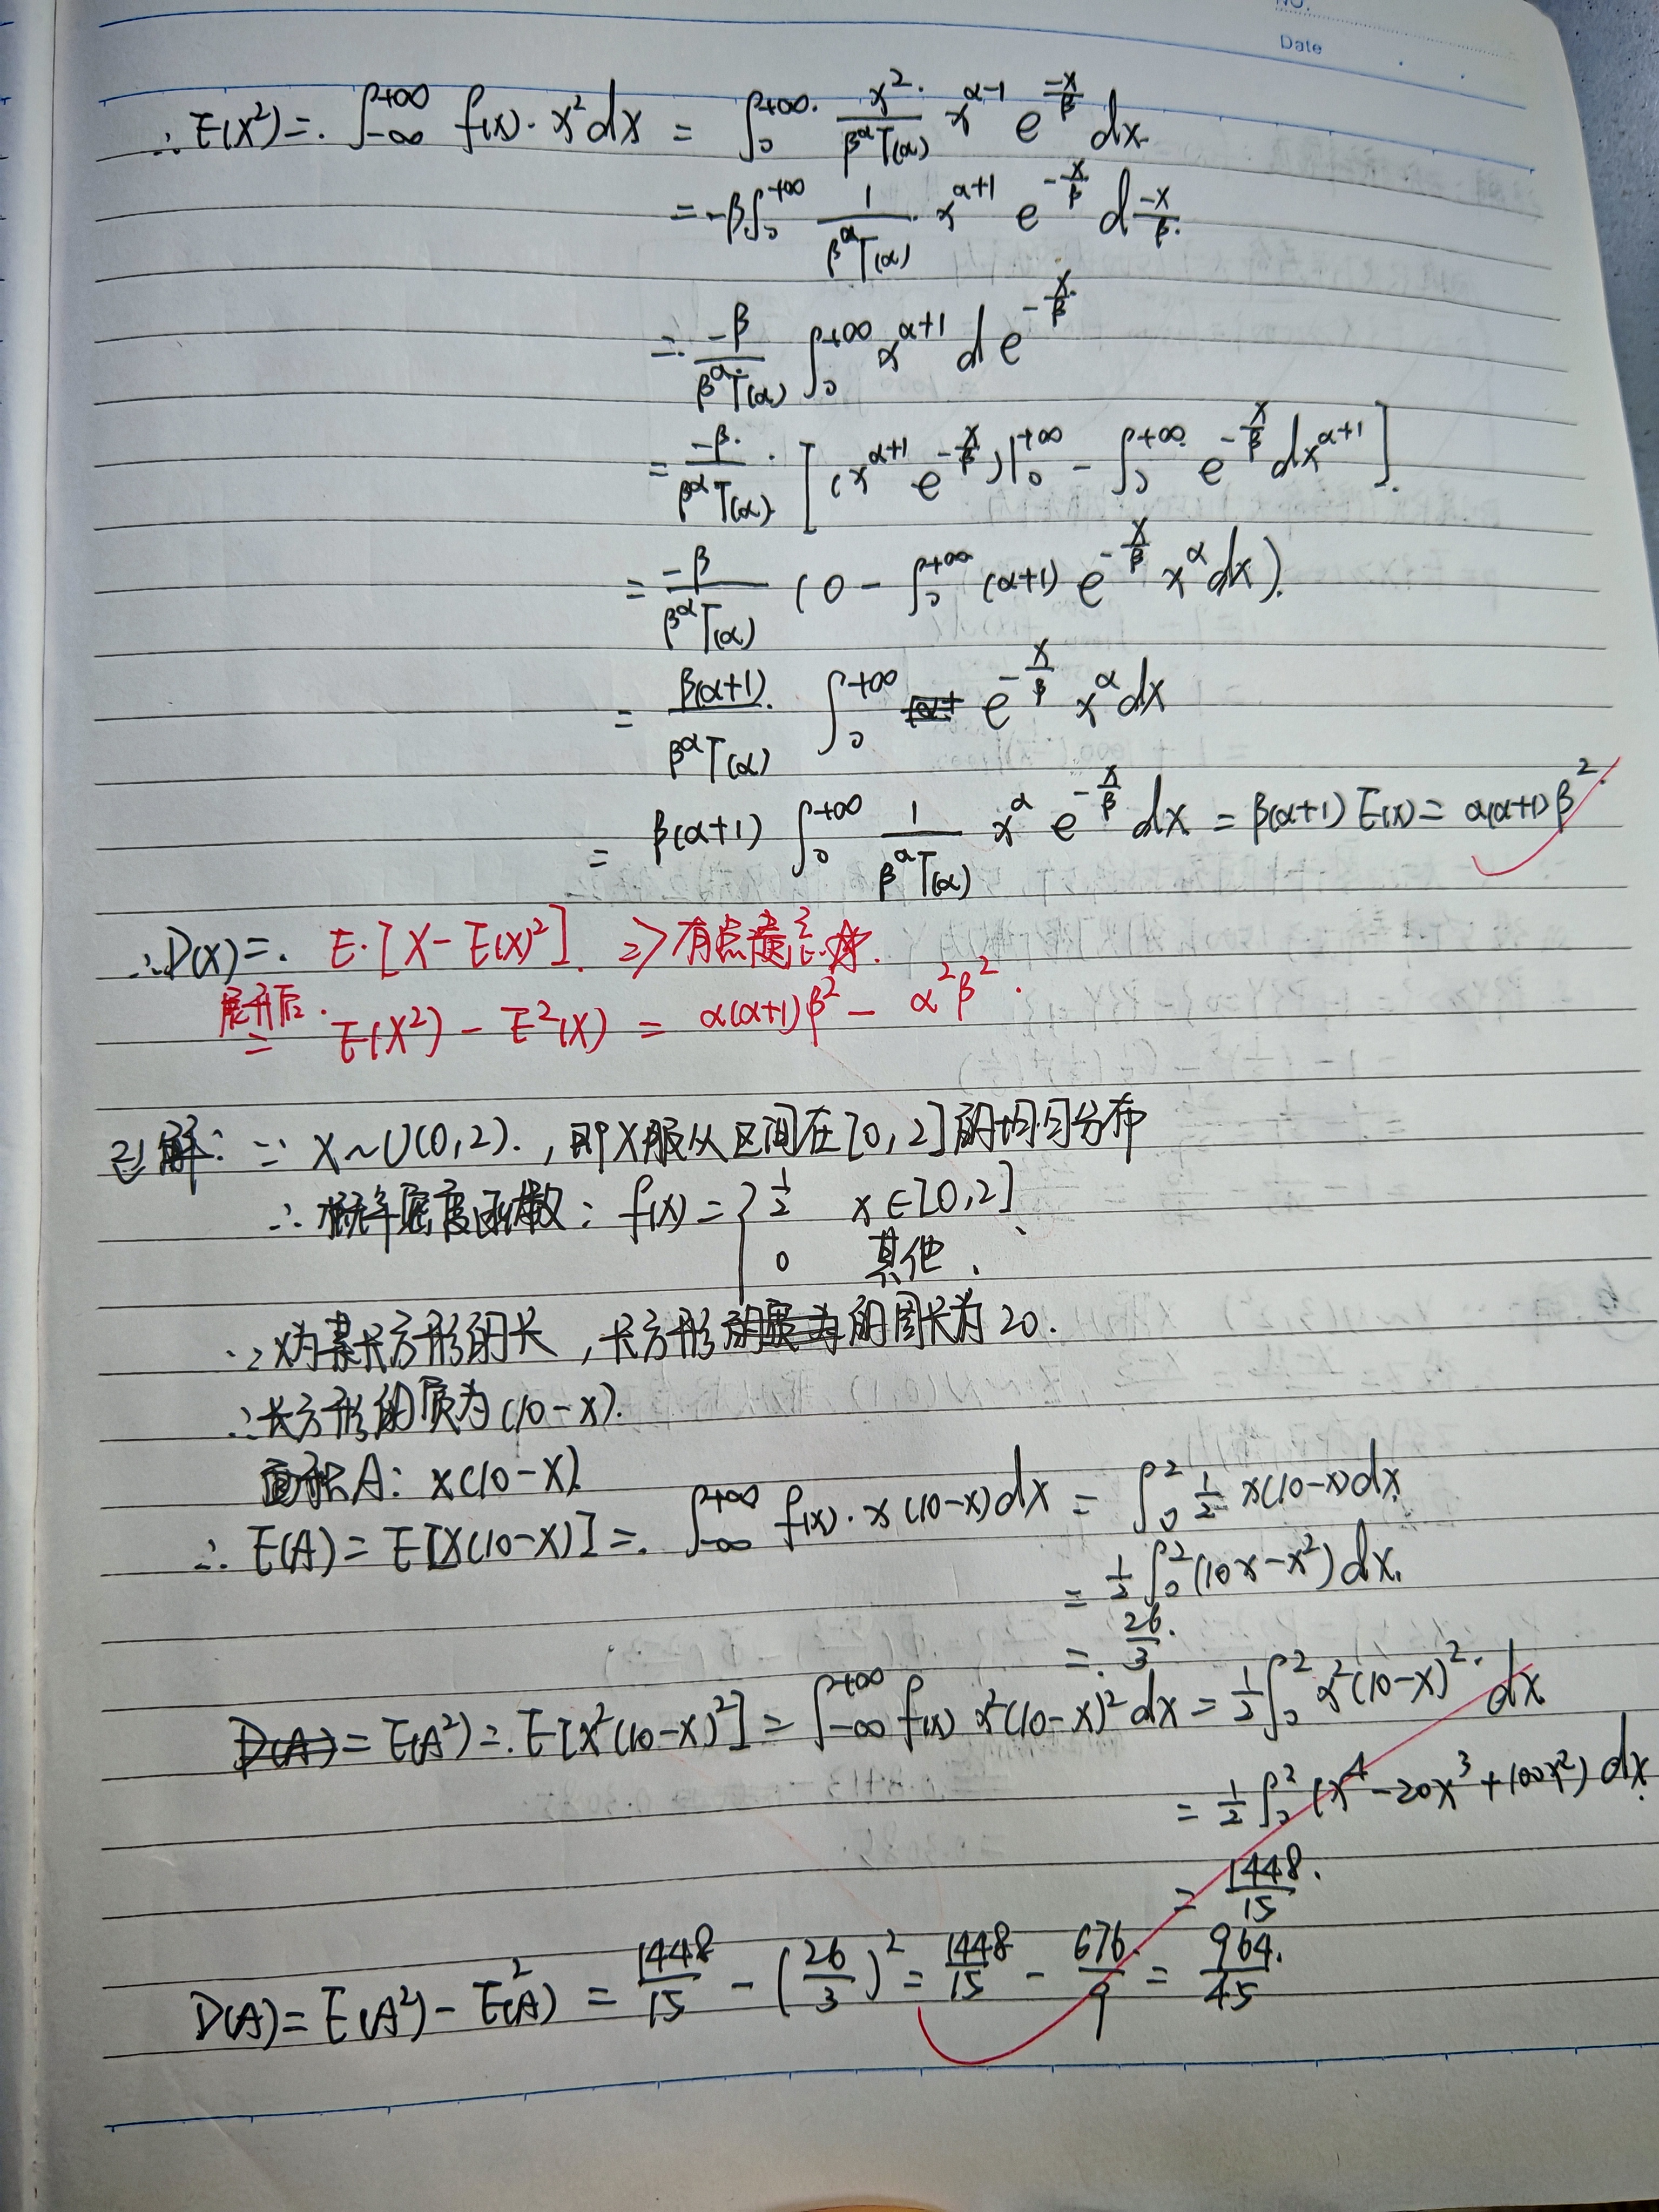 NO.
Date
∴ E(X²) = ∫_{-∞}^{+∞} f(x)·x²dx = ∫_0^{+∞} \frac{x²}{β^αΓ(α)} x^{α-1} e^{\frac{-x}{β}} dx.
= -β∫_0^{+∞} \frac{1}{β^αΓ(α)} x^{α+1} e^{-\frac{x}{β}} d\frac{-x}{β}.
= \frac{-β}{β^αΓ(α)} ∫_0^{+∞} x^{α+1} d e^{-\frac{x}{β}}
= \frac{-β}{β^αΓ(α)} · [(x^{α+1} e^{-\frac{x}{β}})|_0^{+∞} - ∫_0^{+∞} e^{-\frac{x}{β}} dx^{α+1}].
= \frac{-β}{β^αΓ(α)} (0 - ∫_0^{+∞} (α+1) e^{-\frac{x}{β}} x^α dx).
= \frac{β(α+1)}{β^αΓ(α)} ∫_0^{+∞} e^{-\frac{x}{β}} x^α dx
= β(α+1) ∫_0^{+∞} \frac{1}{β^αΓ(α)} x^α e^{-\frac{x}{β}} dx = β(α+1) E(x) = α(α+1)β².
∴ D(X) = . E·[X - E(X)²]. => 有点
展开后. = E(X²) - E²(X) = α(α+1)β² - α²β².
21 解: ∵ X~U(0,2). , 即X服从区间在[0,2]的均匀分布
∴ 概率密度函数: f(x) = { \frac{1}{2} x∈[0,2]
0 其他.
∵ X为某长方形的长, 长方形的周长为20.
∴ 长方形的质为(10-X).
面积A: X(10-X)
∴ E(A) = E[X(10-X)] = . ∫_{-∞}^{+∞} f(x)·x(10-x)dx = ∫_0^2 \frac{1}{2} x(10-x)dx
= \frac{1}{2} ∫_0^2 (10x-x²)dx.
= . \frac{26}{3}.
D(A) = E(A²) = . E[X²(10-X)²] = ∫_{-∞}^{+∞} f(x) x²(10-x)² dx = \frac{1}{2} ∫_0^2 x²(10-x)². dx
= \frac{1}{2} ∫_0^2 (x⁴-20x³+100x²) dx.
= \frac{1448}{15}.
D(A) = E(A²) - E²(A) = \frac{1448}{15} - (\frac{26}{3})² = \frac{1448}{15} - \frac{676}{9} = \frac{964}{45}.